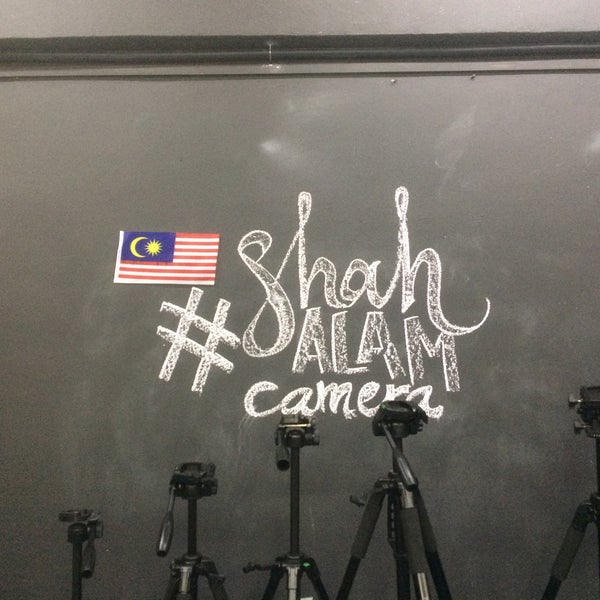 #Shah
ALAM
camera